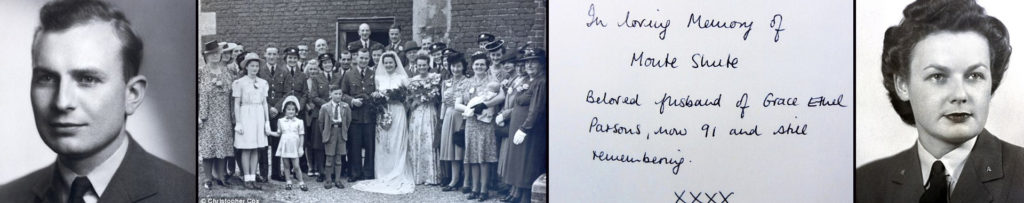 © Christopher Cox
In loving Memory of
Monte Shute
Beloved husband of Grace Ethel
Parsons, now 91 and still
remembering.
XXXX